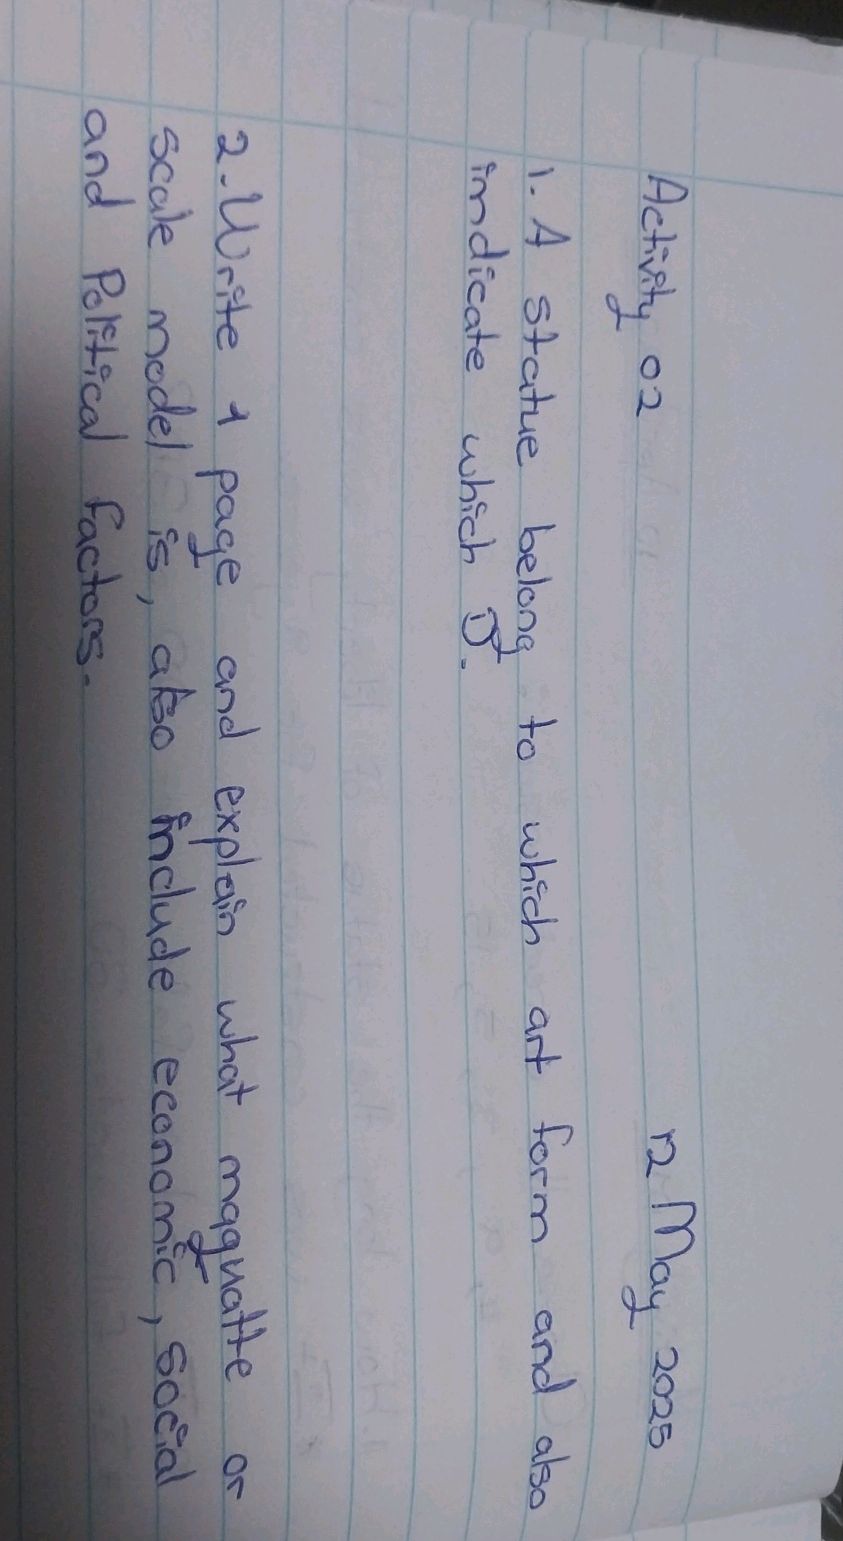 Activity 02 12 May 2025
1. A statue belong to which art form and also
indicate which D.
2. Write 1 page and explain what maquatte or
scale model is, also include economic, social
and Political factors.